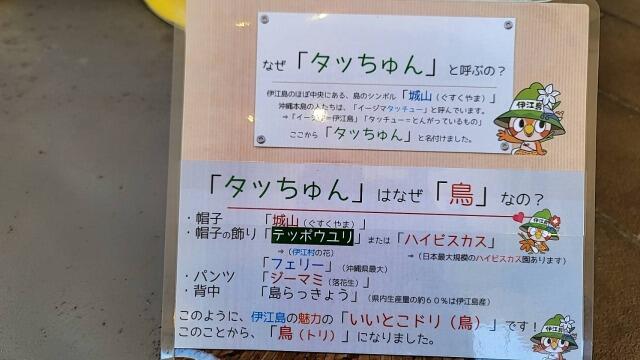 なぜ「タッちゅん」と呼ぶの？
伊江島のほぼ中央にある、島のシンボル「城山（ぐすくやま）」
沖縄本島の人たちは、「イージマタッチュー」と呼んでいます。
⇒「イージマ＝伊江島」「タッチュー＝とんがっているもの」
ここから「タッちゅん」と名付けました。
伊江島
「タッちゅん」はなぜ「鳥」なの？
・帽子　「城山（ぐすくやま）」
・帽子の飾り「テッポウユリ」または「ハイビスカス」
⇒（伊江村の花）　⇒（日本最大規模のハイビスカス園あります）
「フェリー」（沖縄県最大）
・パンツ　「ジーマミ（落花生）」
・背中　「島らっきょう」（県内生産量の約６０％は伊江島産）
このように、伊江島の魅力の「いいとこドリ（鳥）」です！
このことから、「鳥（トリ）」になりました。